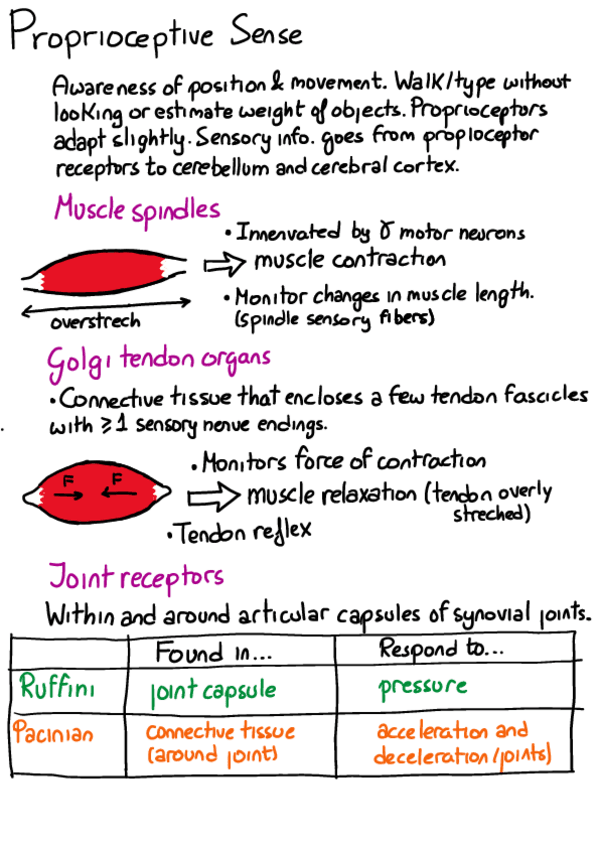 Proprioceptive Sense
Awareness of position & movement. Walk/type without
looking or estimate weight of objects. Proprioceptors
adapt slightly. Sensory info. goes from propioceptor
receptors to cerebellum and cerebral cortex.
Muscle spindles
• Innenvated by γ motor neurons
⇨ muscle contraction
• Monitor changes in muscle length.
(spindle sensory fibers)
overstrech
Golgi tendon organs
• Connective tissue that encloses a few tendon fascicles
with ≥1 sensory nerve endings.
F F
• Monitors force of contraction
⇨ muscle relaxation (tendon overly
streched)
• Tendon reflex
Joint receptors
Within and around articular capsules of synovial joints.
Found in... Respond to...
Ruffini joint capsule pressure
Pacinian connective tissue (around joint) acceleration and deceleration (joints)